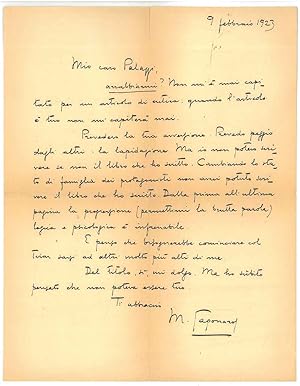 9 febbraio 1923
Mio caro Palazzi,
arrabbiarmi? Non mi è mai capi-
tato per un articolo di critica. quando l'articolo
è tuo non mi capiterà mai.
Prevedevo la tua avversione. Prevedo peggio
dagli altri: la lapidazione. Ma io non potevo scri-
vere se non il libro che ho scritto. Cambiando lo sta-
to di famiglia dei protagonisti non avrei potuto scri-
vere il libro che ho scritto. Dalla prima all'ultima
pagina la progressione (permettimi la brutta parola)
logica e psicologica è
E penso che bisognerebbe cominciare col
tirar sassi ad altri molto più alti di me.
Del titolo, sì, mi dolgo. Ma ho subito
pensato che non poteva essere tuo
Ti abbraccio
M. Saponaro